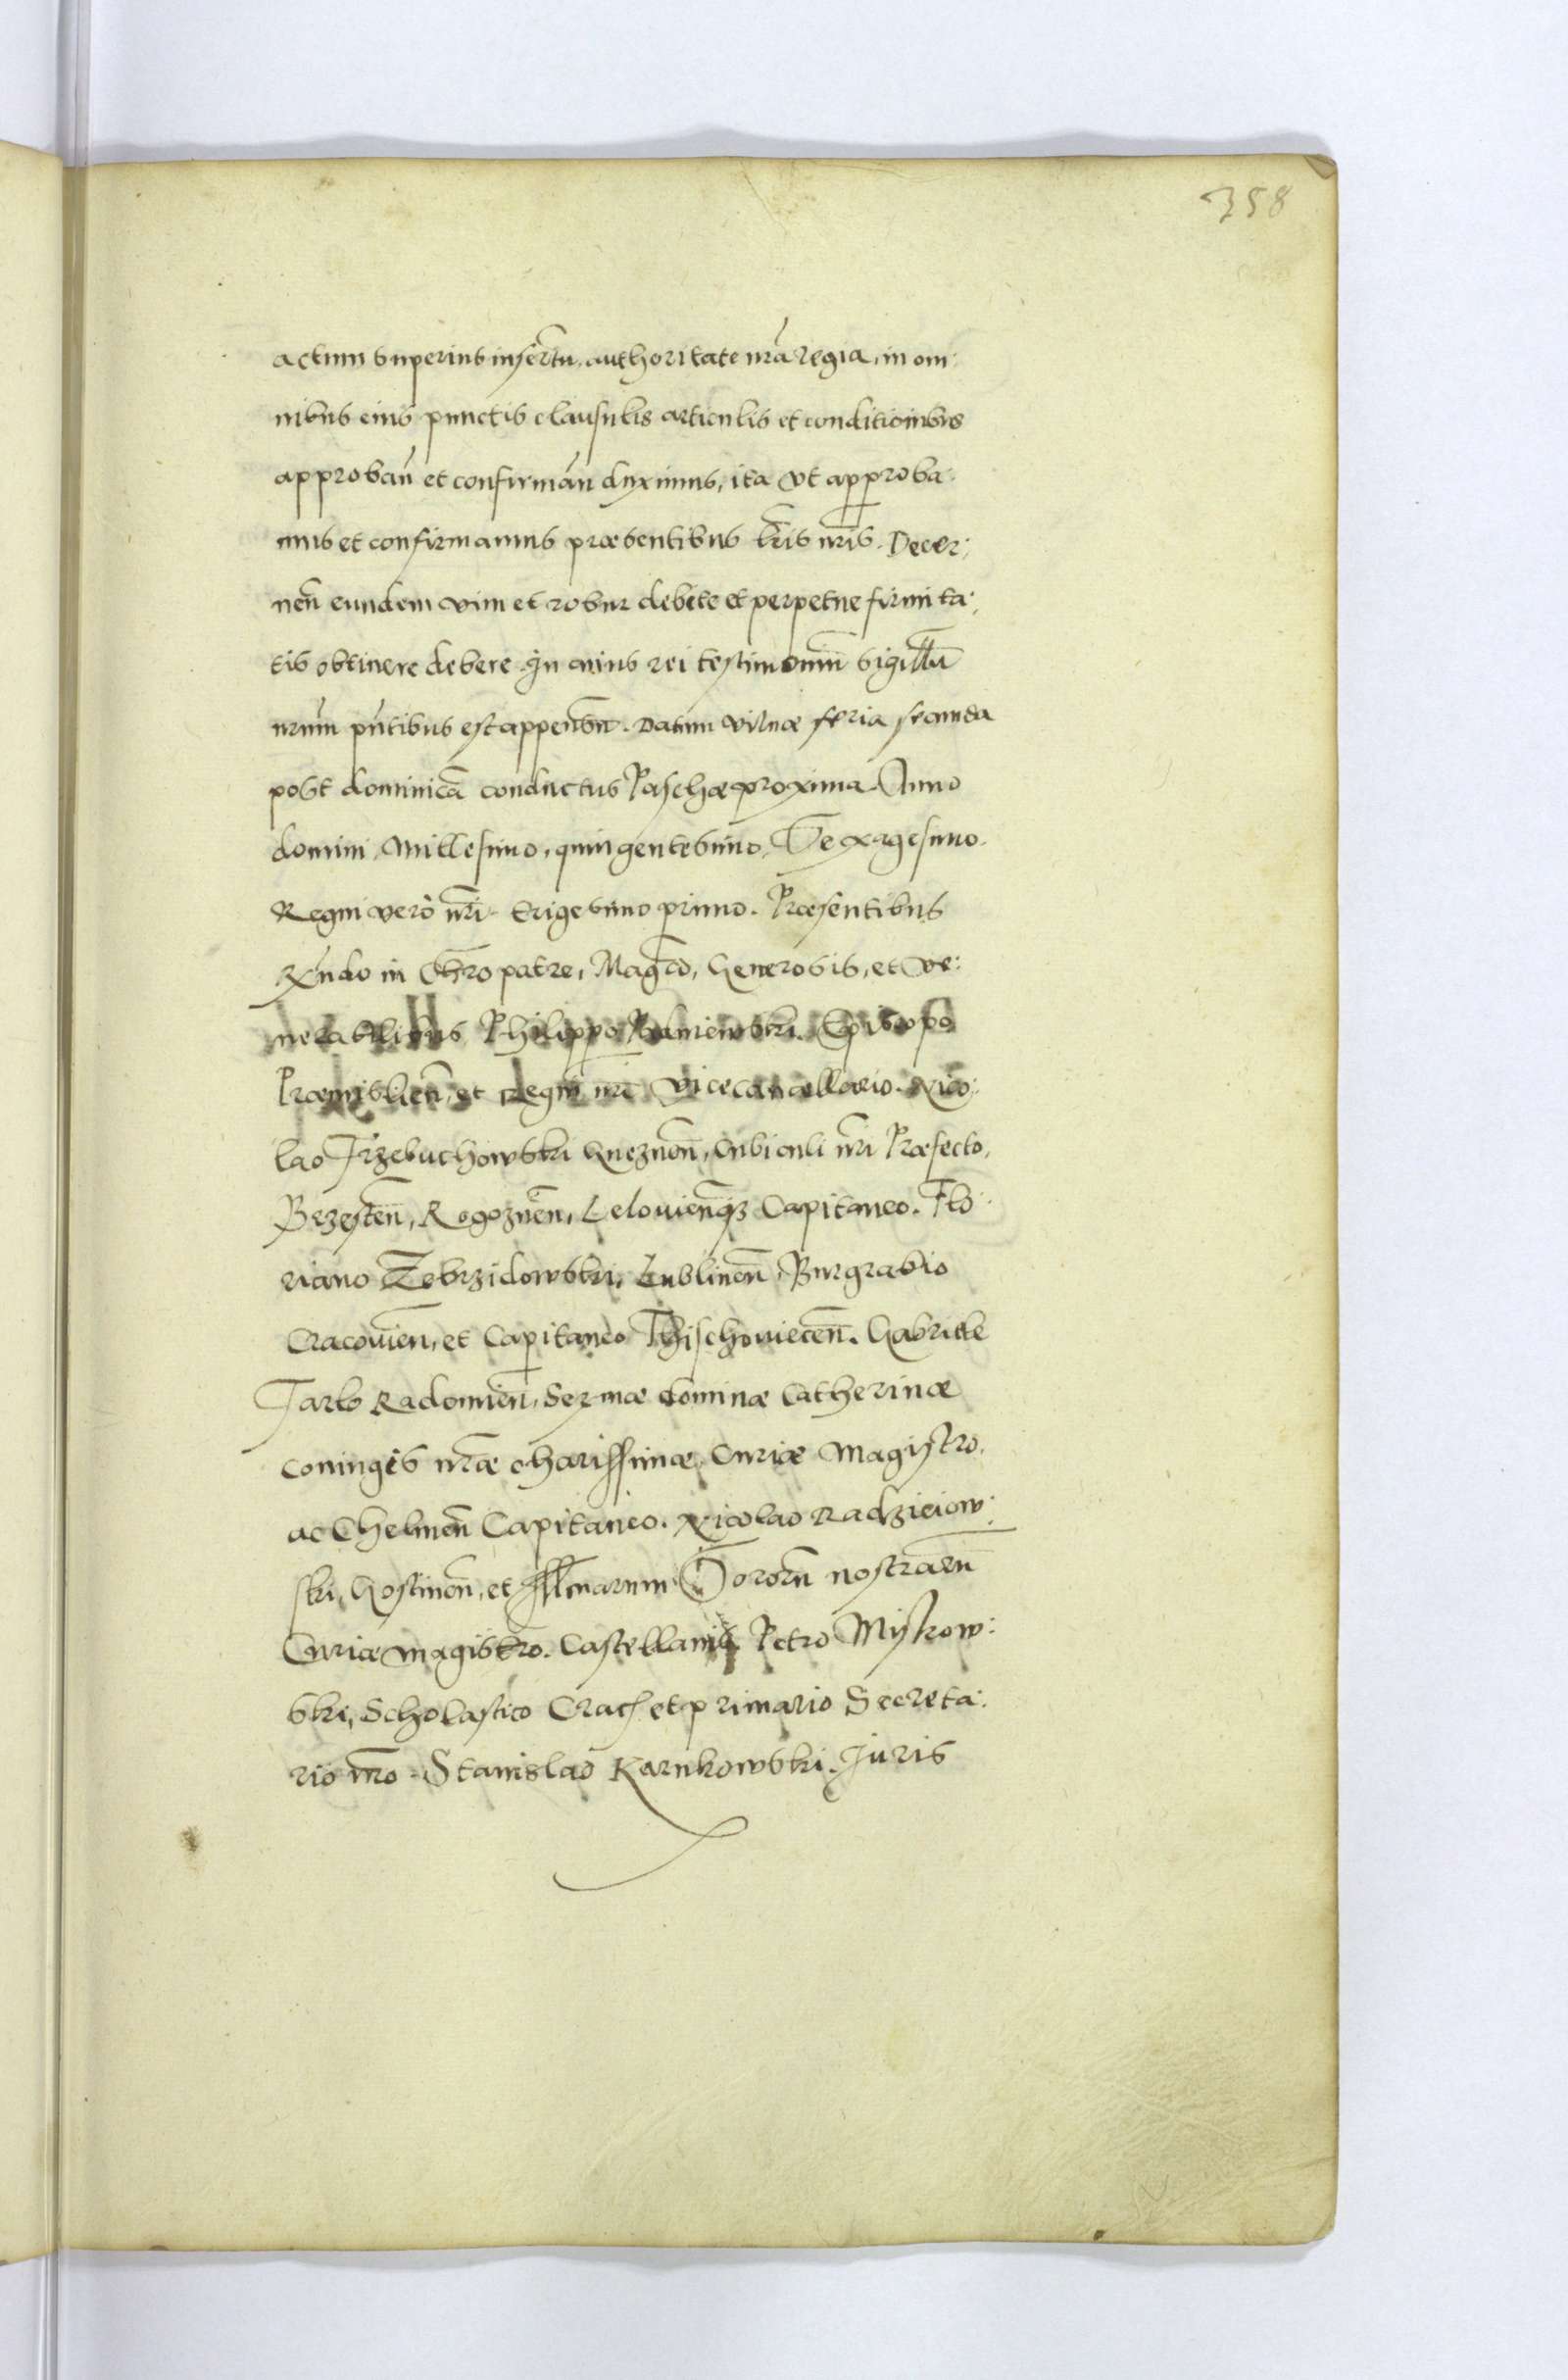 358
actum superius insertū, authoritate nr̄a regia, in om:
nibus eius punctis clausulis articulis et conditionibus
approbān et confirmān duximus, ita ut approba:
mus et confirmamus præsentibus lr̄is nr̄is. Decer:
nen̄ eundem vim et robur debite et perpetue firmita:
tis obtinere debere. In cuius rei testimoniū sigillū
nrūm pn̄tibus est appensū. Datum Vilnæ feria secunda
post dominicā conductus Paschæ proxima Anno
domini, Millesimo, quingentesimo, Sexagesimo.
Regni verò nr̄i trigesimo primo. Præsentibus
Rn̄do in Chr̄o patre, Magc̄o, Generosis, et Ve:
nerabilibus Philippo Padniewski. Episcopo
Præmislien̄, et Regni nr̄i Vicecancellario. Nico:
lao Trzebuchowski Gneznen̄, Cubiculi nr̄i Præfecto,
Brzesten̄, Rogoznen̄, Lelovien̄qʒ Capitaneo. Flo:
riano Zebrzidowski, Lublinen̄, Burgrabio
Cracovien̄, et Capitaneo Thischoviecen̄. Gabriele
Tarlo Radomien̄, Serm̄æ dominæ Catherinæ
coniugis nr̄æ charissimæ, Curiæ Magistro,
ac Chelmen̄ Capitaneo. Nicolao Radzieiow:
ski, Gostinen̄, et Illm̄arum Sororū nostrarū
Curiæ magistro. Castellanis. Petro Miskow:
ski, Scholastico Crac̄ et primario Secreta:
rio nr̄o. Stanislao Karnkowski. Juris